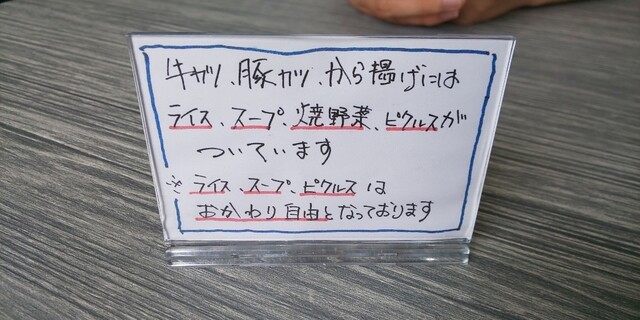 牛カツ、豚カツ、から揚げには
ライス、スープ、焼野菜、ピクルスが
ついています
※ライス、スープ、ピクルスは
おかわり自由となっております